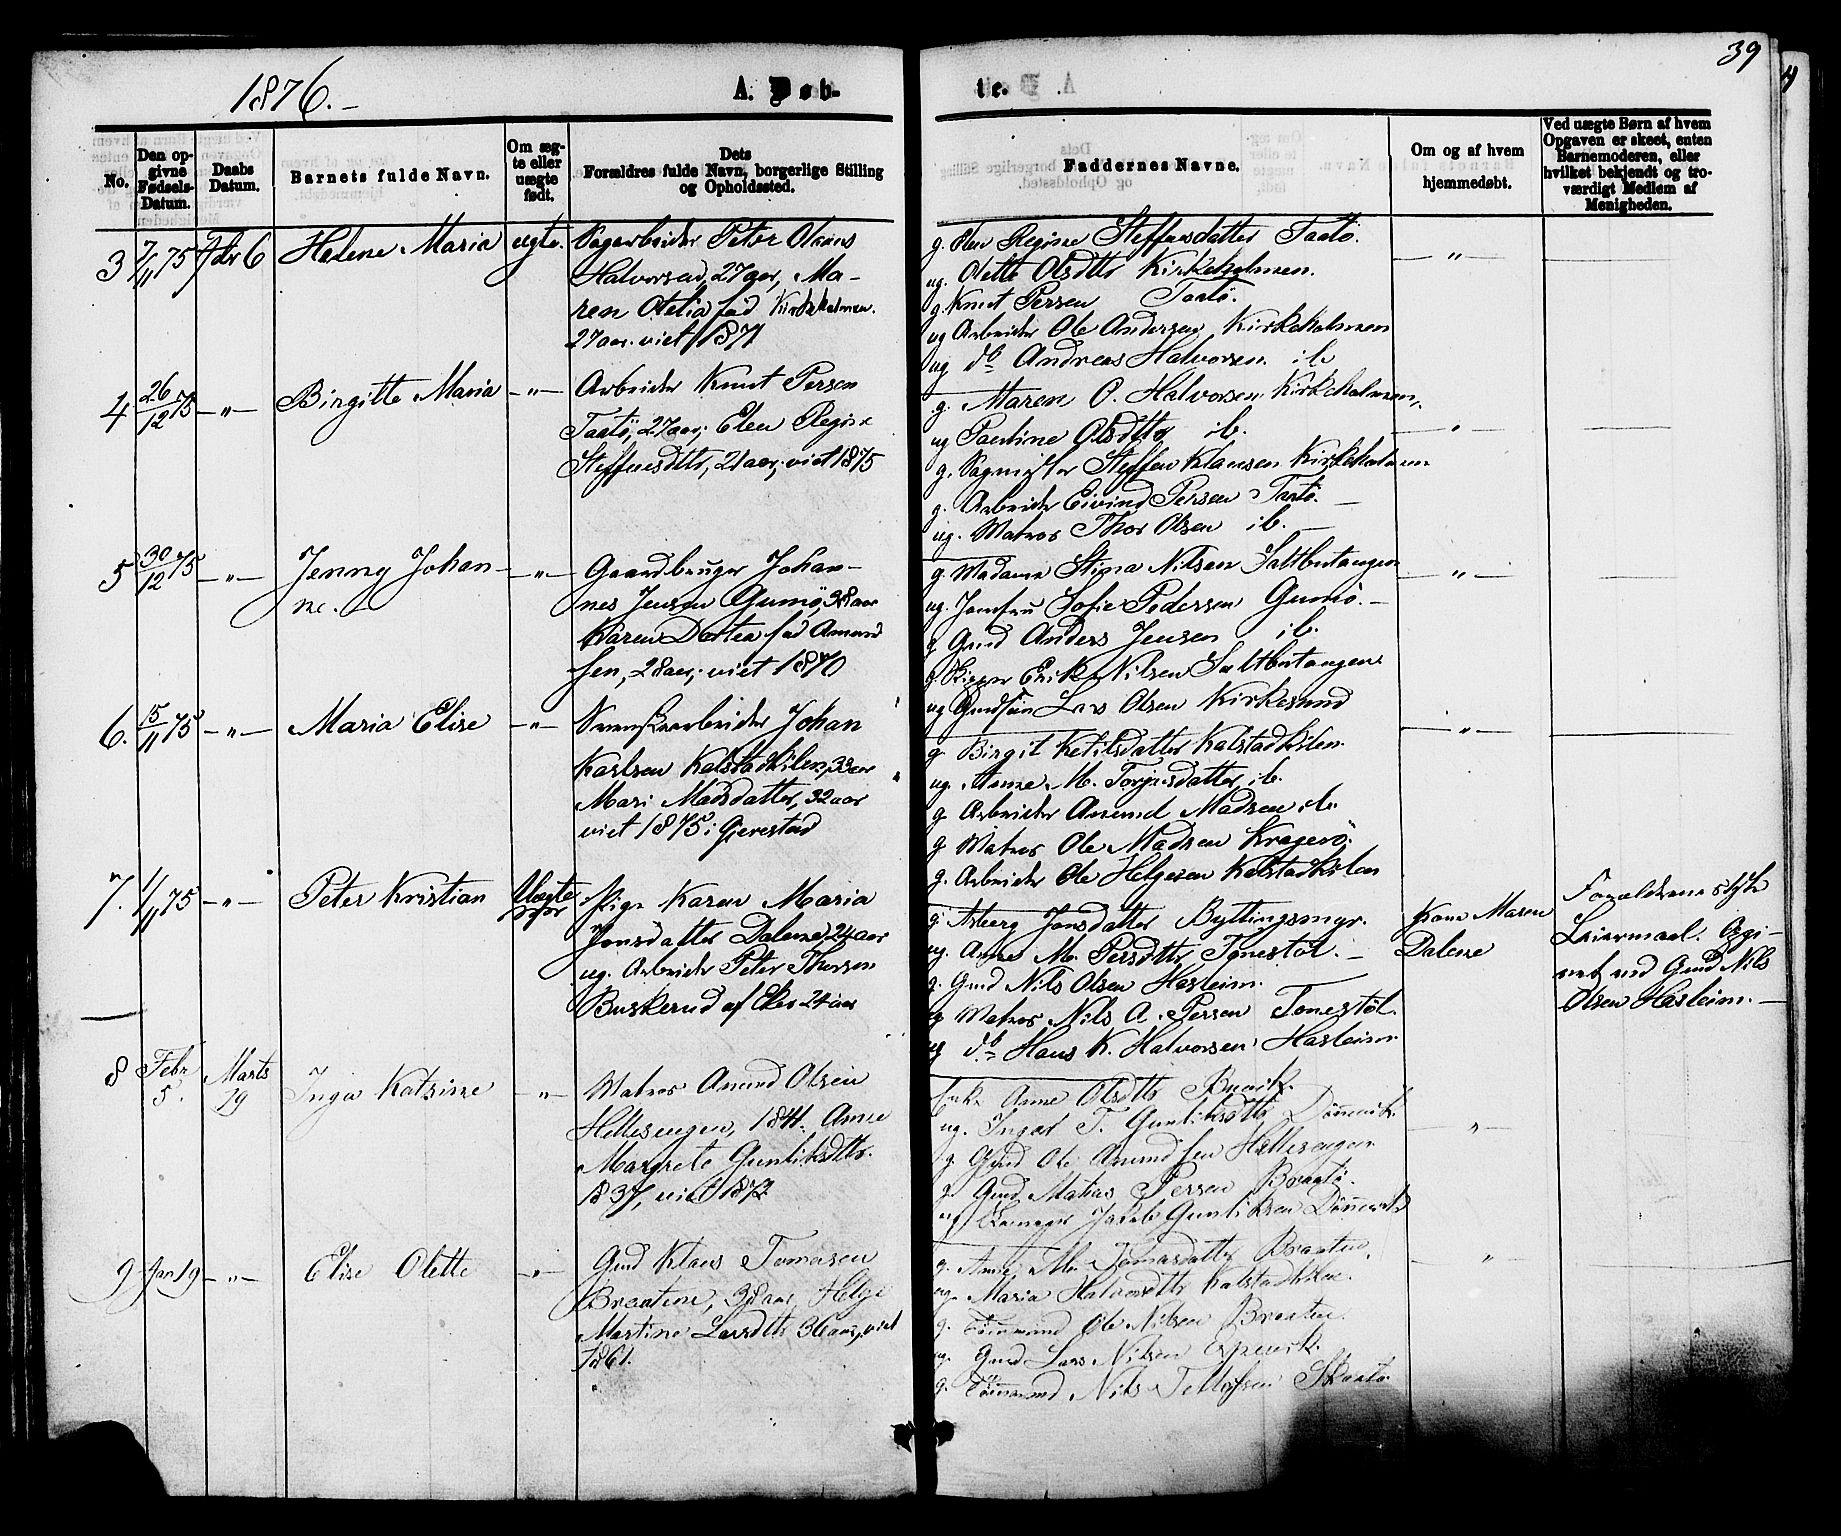 39
1876.-
A. Døb-
te.
No.
Den op-
givne
Fødsels-
Datum.
Daabs
Datum.
Barnets fulde Navn.
Om æg-
te eller
uægte
født.
Dets
Forældres fulde Navn, borgerlige Stilling
og Opholdssted.
Faddernes Navne.
Om og af hvem
hjemmedøbt.
Ved uægte Børn af hvem
Opgaven er skeet, enten
Barnemoderen, eller
hvilket bekjendt og tro-
værdigt Medlem af
Menigheden.
3 7/11 75 Febr 6 Helene Maria ægte.
Sagarbeider Peter
Halvorsen, 27 aar, Ma-
ren Otelia fød Kirkeholmen.
27 aar. viet 1871
g. Elen Regine Steffensdatter Taatö.
ug. Olette Olsdtr Kirkeholmen.
g. Knut Persen Taatö.
ug Arbeider Ole Andersen Kirkeholmen
ug do Andreas Halvorsen ib
— " —
4 26/12 75 — " — Birgitte Maria — " —
Arbeider Knut Persen
Taatö, 27 aar; Elen Regine
Steffensdtr, 21 aar; viet 1875
g. Maren O. Halvorsen Kirkeholmen.
ug Pauline Olsdtr ib.
g. Sagmester Steffen Klausen Kirkeholmen
g. Arbeider Eivind Persen Taatö.
ug. Matros Thor Olsen ib.
— " —
5 30/12 75 — " — Jenny Johan-
ne.
— " —
Gaardbruger Johan-
nes Jensen Gumö, 38 aar
Karen Dortea fød Amund
sen, 28 aar; viet 1870
g. Madame Stina Nilsen Saltbutangen
ug. Jomfru Sofie Pedersen Gumö.
g Gmd Anders Jensen ib.
g. Skipper Erik Nilsen Saltbutangen
ug Gmdsön Lars Olsen Kirkesund
— " —
6. 15/11 75 — " — Maria Elise — " —
Svenskearbeider Johan
Karlsen Kalstadkilen, 33 aar
Mari Madsdatter, 32 aar
viet 1875 i Gjerestad
g. Birgit Ketilsdatter Kalstadkilen.
ug. Anne M. Torjusdatter ib.
g. Arbeider Amund Madsen ib.
g Matros Ole Madsen Kragerö.
g. Arbeider Ole Helgesen Kalstadkilen
— " —
7. 1/11 75 — " — Peter Kristian Uægte
Pige Karen Maria
Jonsdatter Dalene, 24 aar
ug. Arbeider Peter Thorsen
Buskerud af Eker 24 aar
g. Asberg Jonsdatter Byttingsmyr.
ug. Anne M. Persdtr Tonestöl.
g. Gmd Nils Olsen Hasleim.
g Matros Nils A. Persen Tonestöl.
ug do Hans K. Halvorsen Hasleim
Kone Maren
Dalene
Forældrenes 1ste
Leiermaal. Opgi-
vet ved Gmd Nils
Olsen Hasleim.
8 Febr
5.
Marts
19
Inga Katrine — " —
Matros Amund Olsen
Hellesengen, 1841. Anne
Margrete Gunliksdtr.
1837, viet 1872
Enke Anne Olsdtr
ug. Inger T. Gunliksdtr Dönnevik.
g Gmd Ole Amundsen Hellesengen
g. Gmd Matias Persen Braatö.
ug Jakob Gunliksen Dönnevik
"
9 Jan 19 — " — Elise Olette — " —
Gmd Klaus Tomasen
Braaten, 38 aar, Helge
Martine Larsdtr 36 aar, viet
1861.
g. Anne M. Tomasdatter Braaten.
ug. Maria Halvorsdtr Kalstadkilen.
g. Tömmermd Ole Nilsen Braaten.
ug. Gmd Lars Nilsen Espevik.
g. Tömmermd Nils Tellefsen Skaatö
"